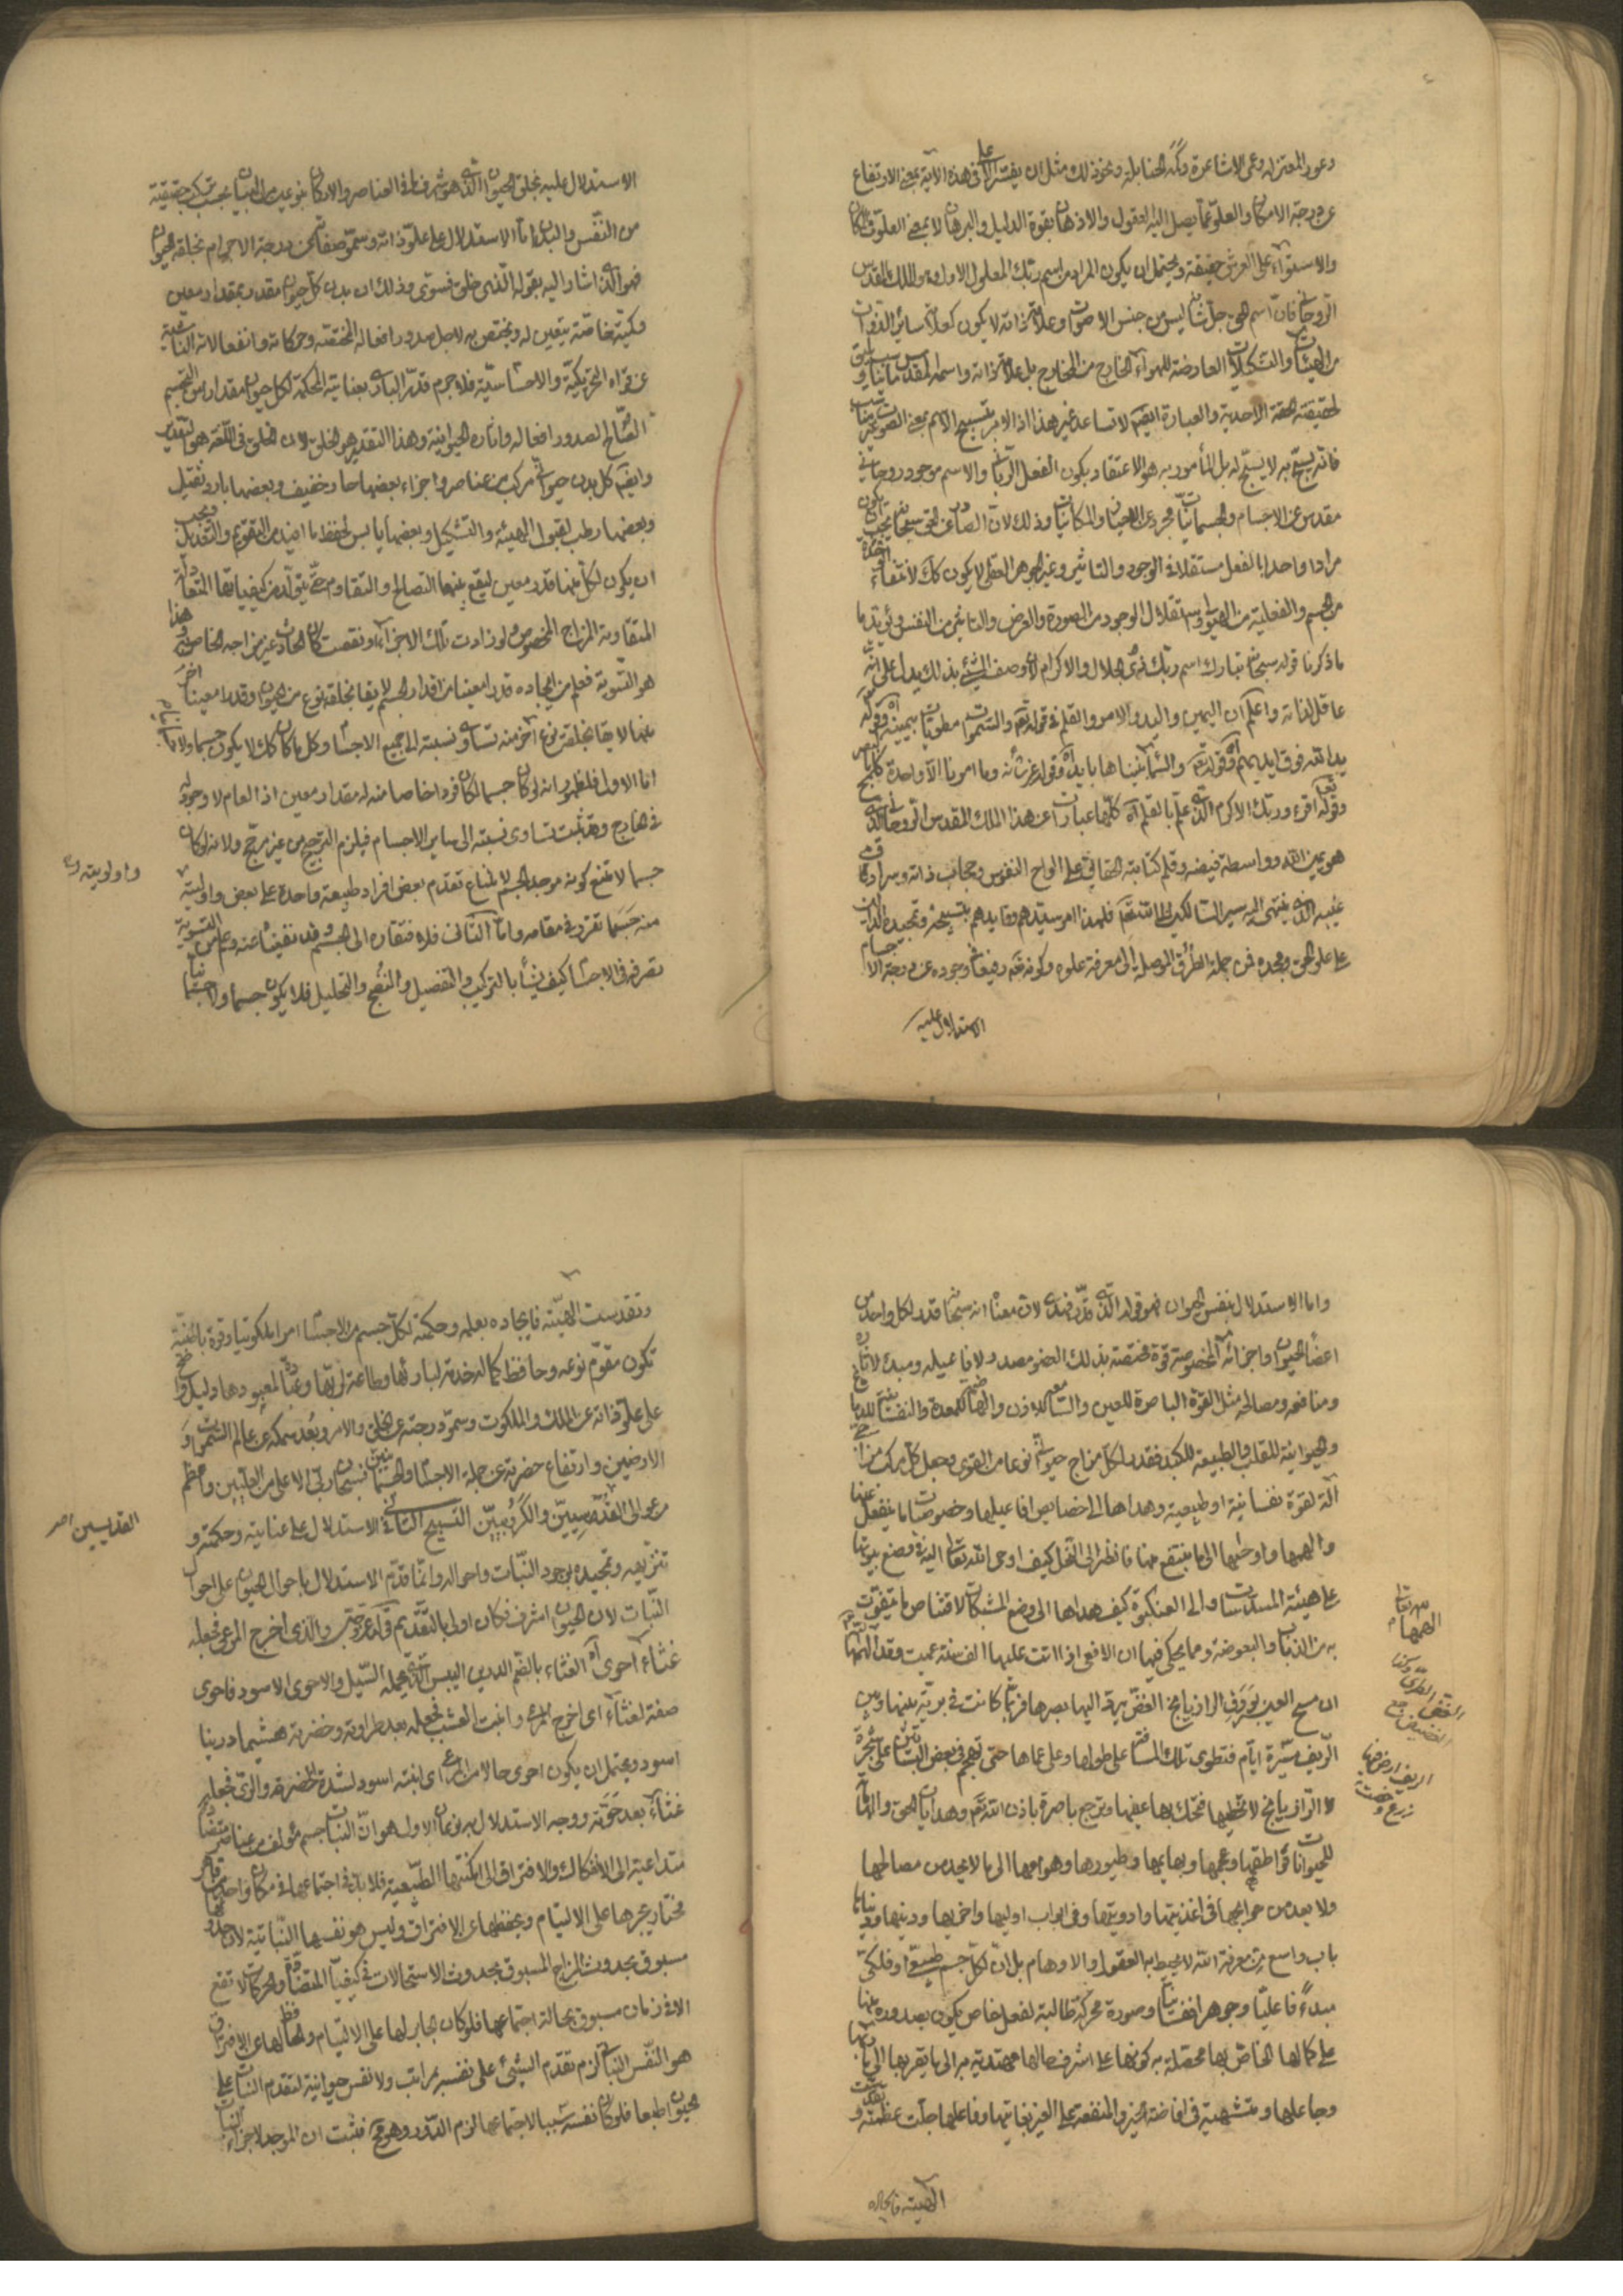 دعوى المعتزلة وعمى الاشاعرة وكد الحنابلة ونحو ذلك مثل ان يفسر الاعلى في هذه الآية بمعنى الارتفاع
عن درجة الامكان والعلو عما يصل اليه العقول والاذهان بقوة الدليل والبرهان لا بمعنى العلو في المكان
والاستواء على العرش حقيقة ويحتمل ان يكون المراد من اسم ربك المعلول الاول وهو الملك المقدس
الروحاني فان اسم الحق جل شانه ليس من جنس الاصوات وعلامة ذاته لا يكون كعلامة سائر الذوات
من الهيئات والتشكلات العارضة للهواء الخارج من المخارج بل علامة ذاته واسمه المقدس ما يناسب و
لحقيقته الحقة الاحدية والعبارة ايضا لا تساعد غير هذا اذ الامر بتسبيح الاسم بمعنى الصوت غير مناسب
فانه يسبح به لا يسبح له بل المأمور به هو الاعتقاد بكون الفعل الرباني والاسم موجود روحاني
مقدس عن الاجسام والجسمانيات مجرد عن والمكانيات وذلك لان الصادر عن الحق سبحانه يجب ان يكون
مرادا واحدا بالفعل مستقلا في الوجود والتاثير وغير الجوهر العقلي لا يكون كك لانتفاء
من الجسم والفعلية من الهيولى واستقلال الوجود من الصورة والعرض والتاثير من النفس ويؤيد ما
ما ذكرنا قوله سبحانه تبارك اسم ربك ذي الجلال والاكرام لان وصف الشيء بذلك يدل على انه
عاقل لذاته واعلم ان اليمين واليد والامر والقلم في قوله تعم والسموات مطويات بيمينه وقوله
يد الله فوق ايديهم وقوله تعم والسماء بنيناها بايد وقوله عز شأنه وما امرنا الا واحدة كلمح
وقوله اقرء وربك الاكرم الذي علم بالقلم آه كلها عبارات عن هذا الملك المقدس الروحاني الذي
هو يمين الله وواسطة فيضه وقلم كتابته الحقايق على الواح النفوس وحجاب ذاته وسرادق
غيبه الذي ينتهي اليه سير السالكين الى الله تعم فلهذا امر سيدهم وقايدهم بتسبيحه وتمجيده
على علو الحق ومجده فمن جملة الطرق الموصلة الى معرفة علوه وكونه تعم رفيعا وجوده عن درجة الاجسام
الاستدلال عليه
الاستدلال عليه بخلق الحيوان الذي هو اشرف ما في العناصر والاركان بنوعيه من البيان بحسب تركب حقيقته
من النفس والبدن اما الاستدلال على علو ذاته وسمو صفاته عن درجة الاجرام بخلقه الحيوان
فهو الذي اشار اليه بقوله الذي خلق فسوى وذلك ان بدن كل حيوان مقدر بمقدار معين
وكيفية خاصة يتعين له ويختص به لاجل صدور افعاله المختصة وحركاته وانفعالاته الناشية
عن قواه التحريكية والاحساسية فلا جرم قدر الباري بعنايته المحكمة لكل حيوان مقدار من التجسم
الصالح لصدور افعاله واثاره الحيوانية وهذا التقدير هو الخلق لان الخلق في اللغة هو التقدير
وايضا كل بدن حيواني مركب من عناصر واجزاء بعضها حار خفيف وبعضها بارد ثقيل
وبعضها رطب لقبول الهيئة والتشكيل وبعضها يابس لحفظ ما افيد من التقويم والتعديل ويجب
ان يكون لكل منها قدر معين ليقع بينها التصالح والتقاوم حتى يتولد من كيفياتها المتعادلة
المتقاومة المزاج المخصوص ولو زادت تلك الاجزاء او نقصت كان الحادث غير مزاجه الخاص وهذا
هو التسوية فعلم من ايجاده قدرا معينا من اقدار الجسم لا يقا بخلقة نوع من الحيوان وقدرا معينا اخر
منها لا يقا بخلقة نوع اخر منه تساوي نسبته الى جميع الاجسام وكل ما كان كك لا يكون جسما ولا جسمانيا
اما الاول فلظهور انه لو كان جسما لكان فردا خاصا منه له مقدار معين اذ العام لا وجود له
في الخارج وقد ثبت تساوي نسبته الى ساير الاجسام فيلزم الترجيح من غير مرجح ولانه لو كان
جسما لامتنع كونه موجد الجسم لامتناع تقدم بعض افراد طبيعة واحدة على بعض واوليته
واولويته
منه حسبما تقرر في مقامه واما الثاني فلافتقاره الى الجسم وقد نفيناه عنه وعلم من التسوية
تصرفه في الاجسام كيف يشاء بالتركيب والتفصيل والنضج والتحليل فلا يكون جسما ولا جسمانيا
واما الاستدلال بنفس الحيوان فهو قوله الذي قدر فهدى لان معناه انه سبحانه قدر لكل واحد من
اعضاء الحيوان واجزائه المخصوصة قوة مختصة بذلك العضو مصدر لافاعيله ومبدء لاثاره
ومنافعه ومصالحه مثل القوة الباصرة للعين والسامعة للاذن والهاضمة للمعدة والنفسانية للدماغ
والحيوانية للقلب والطبيعية للكبد فقدر لكل مزاج حيواني نوعا من القوى وجعل كل مركب من اجزائه
آلة لقوة نفسانية او طبيعية وهداها الى خصايص افاعيلها وخصوصيات ما ينفعل عنها
والهمها واوحيها الى ما ينتفع منها فانظر الى النحل كيف اوحى الله تعالى اليه في صنع بيوتها
على هيئة المسدسات والى العنكبوت كيف هداها الى وضع المشبكات لاقتناص ما يتقوت
به من الذباب والبعوضة ومما يحكى فيها ان الافعى اذا اتت عليها الف سنة عميت وقد الهمها الله
ان مسح العين بورق الرازيانج الغض يرد اليها بصرها فربما كانت في برية بينها وبين
الريف مسيرة ايام فتطوي تلك المسافة على طولها وعلى عماها حتى تهجم في بعض البساتين على شجرة
الرازيانج لا تخطيها فتحك بها عينها وترجع باصرة باذن الله تعم وهدايات الحق والهاماته
للحيوانات نواطقها وعجمها وبهايمها وطيورها وهوامها الى ما لا يحد من مصالحها
ولا يعد من حوايجها في اغذيتها وادويتها وفي ابواب اوليها واخريها ودينها ودنياها
باب واسع من معرفة الله لا يحيط به العقول والاوهام بل ان لكل جسم طبيعي او فلكي
مبدءً فاعليا وجوهرا نفسانيا وصورة محركة طالبة لفعل خاص يكون بصدوره منها
على كمالها الخاص بها محصلة به كونها على اشرف حالها مهتدية به الى ما يقربها الى
وجاعلها ومتشبهة في افاضة الخير والمنفعة على الغير بغايتها وفاعلها جلت عظمته و
الريف ارض فيها زرع وخصب
الهيته فايجاده
وتقدست الهيته فايجاده بعلمه وحكمته لكل جسم من الاجسام امرا ملكوتيا وقوة باطنية
تكون مقوم نوعه وحافظ كماله خدمة لبارئها وطاعة لربها وعبادة لمعبودها دليل واضح
على علو ذاته عن الملك والملكوت وسمو درجته عن الخلق والامر وبعد سمكه عن عالم السموات و
الارضين وارتفاع حضرته عن جملة الاجسام والجسمانيين فسبحان ربي الاعلى من العالين واعظم
من عوالي القدسيين والكروبيين التسبيح الثاني الاستدلال على عنايته وحكمته و
القديسين
تنزيهه وتمجيده بوجود النبات واحواله وانما قدم الاستدلال باحوال الحيوان على احوال
النبات لان الحيوان اشرف فكان اولى بالتقديم قوله عز وجل والذي اخرج المرعى فجعله
غثاء احوى آه الغثاء بالضم الدرين اليبس الذي يحمله السيل والاحوى الاسود فاحوى
صفة لغثاء اي اخرج المرعى وانبت العشب فجعله بعد طراوته وخضرته هشيما درينا
اسود ويحتمل ان يكون احوى حالا من المرعى اي انبته اسود لشدة الخضرة والري فجعله
غثاء بعد حوته ووجه الاستدلال به نوعان الاول هو ان النبات جسم مؤلف من عناصر متضادة
متداعية الى الانفكاك والافتراق الى امكنتها الطبيعية فلا بد في اجتماعها في مكان واحد من قاهر
مختار يجبرها على الالتيام ويحفظها عن الافتراق وليس هو نفسها النباتية لان وجودها
مسبوق بحدوث المزاج المسبوق بحدوث الاستحالات في كيفيات المتضادة والحركات لا تقع
الا في زمان مسبوق بحالة اجتماعها فلو كان الجابر لها على الالتيام والحافظ لها عن الافتراق
هو النفس النباتي لزم تقدم الشيء على نفسه بمراتب ولا نفس حيوانية لتقدم النبات على
الحيوان طبعا فلو كان نفسه سببا لاجتماعها لزم الدور وهو مح فثبت ان الموجد لاجزاء النبات